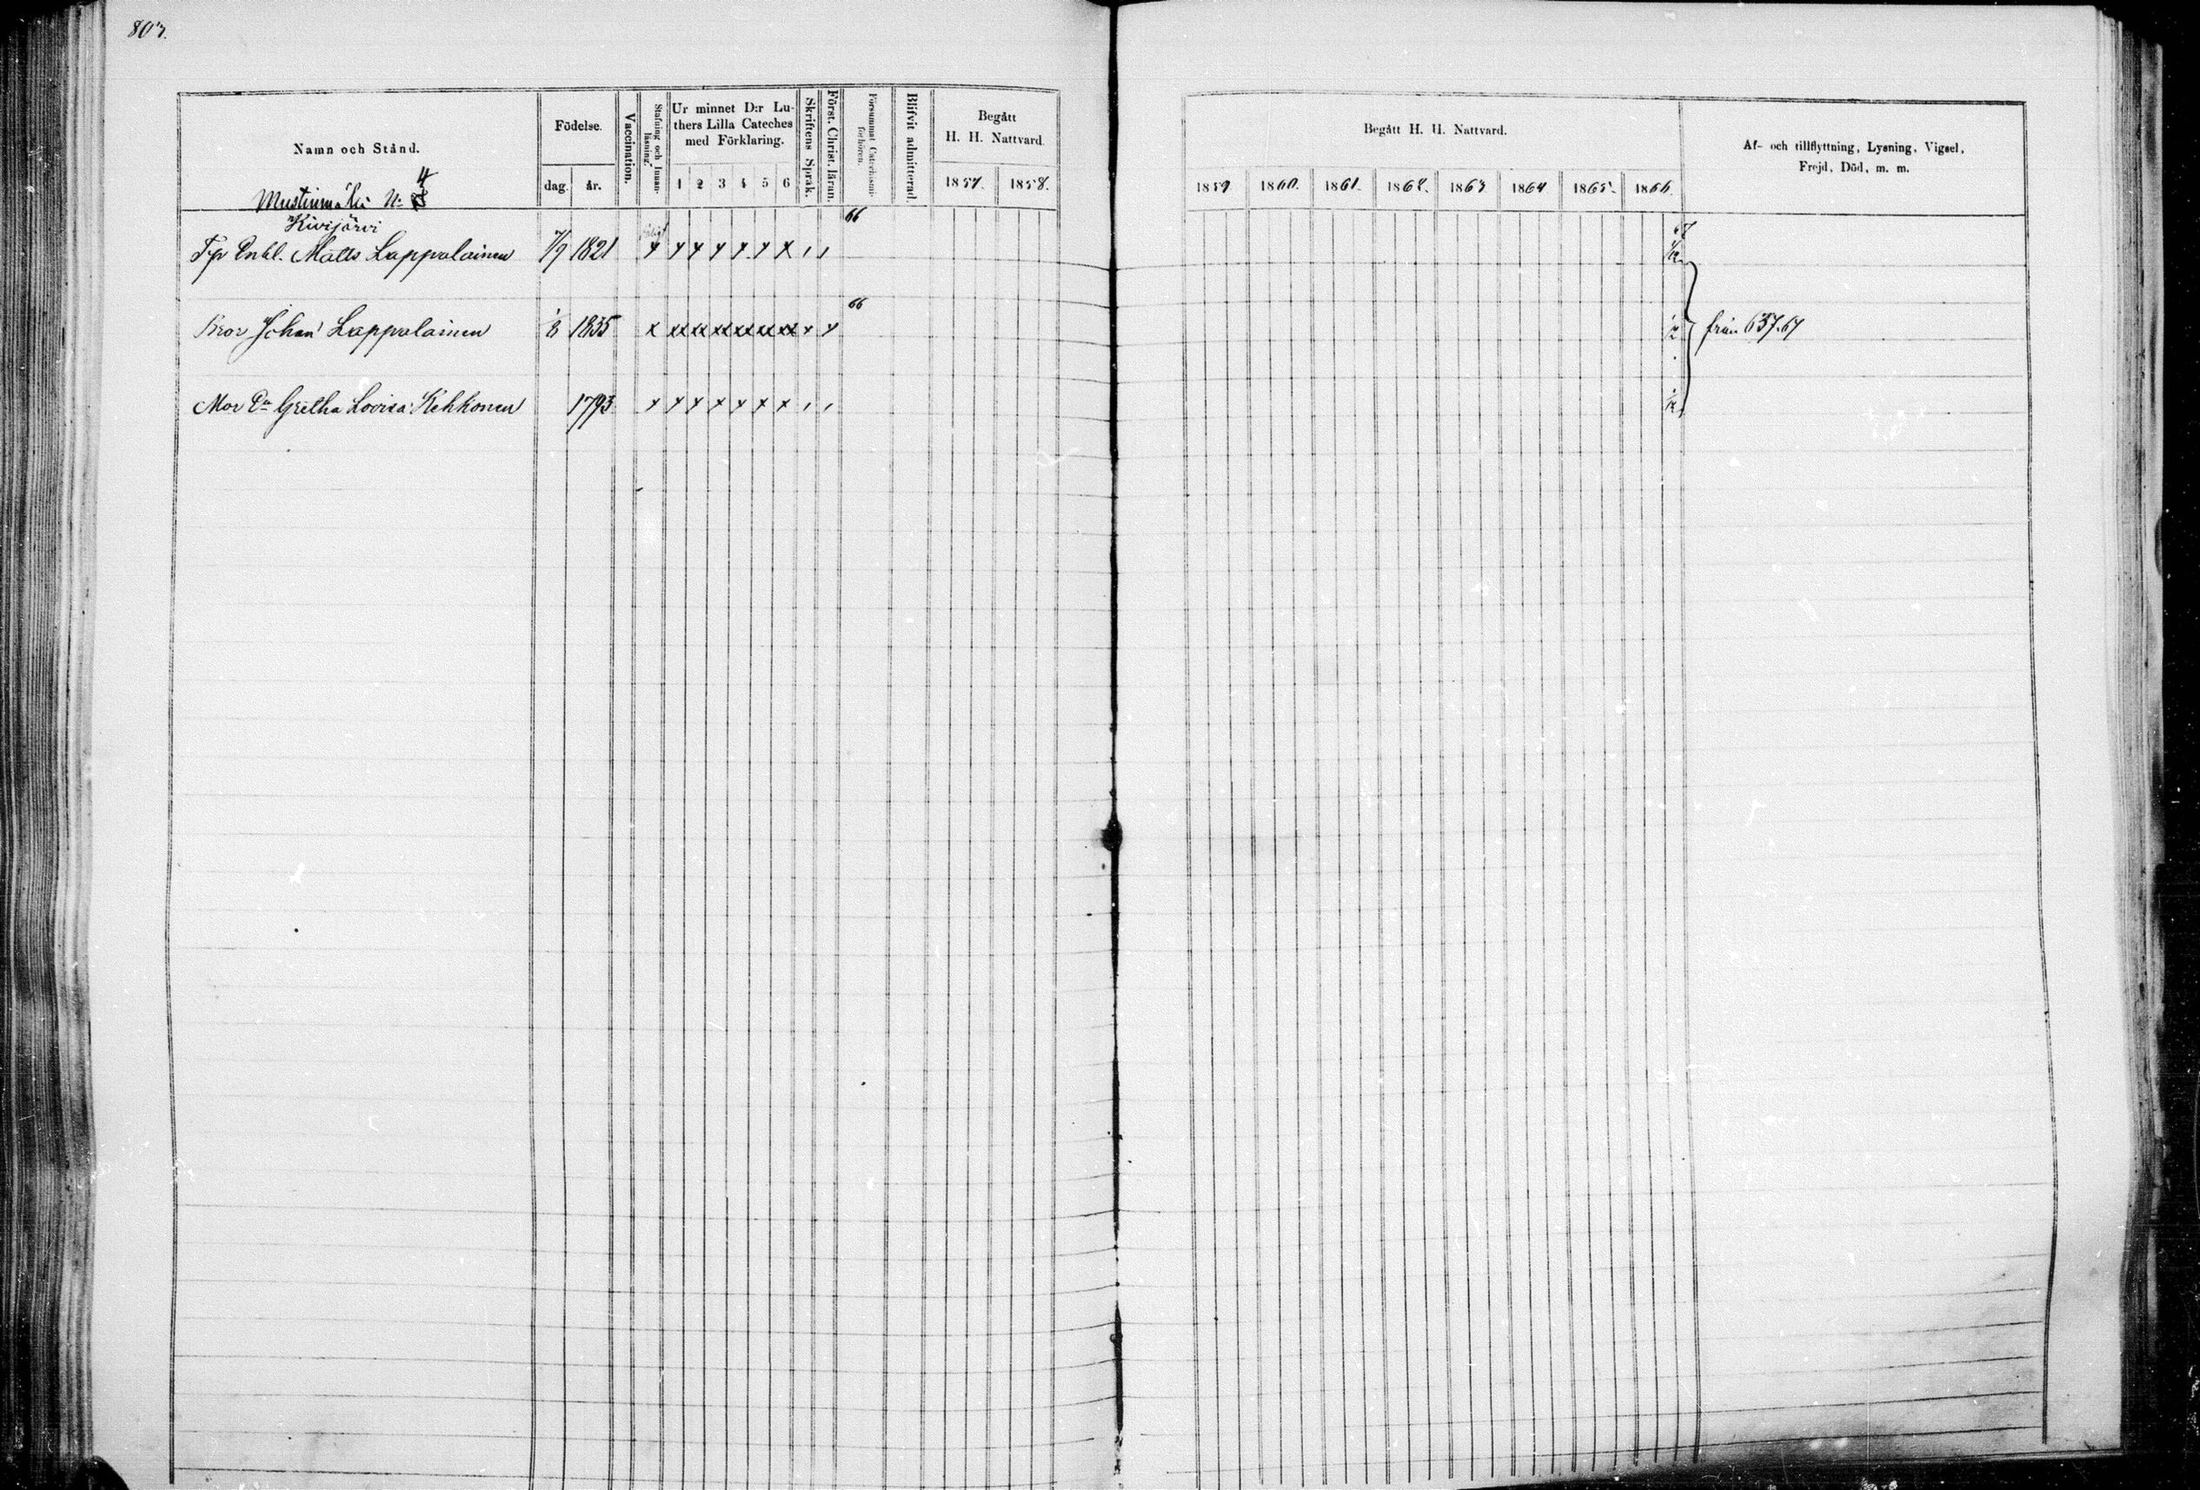 803.
Namn och Stånd.
Mustinmäki N: 4
Födelse.
dag. år.
Vaccination.
Stafning och Innan-
läsning.
Ur minnet D:r Lu-
thers Lilla Cateches
med Förklaring.
1 2 3 4 5 6
Skriftens Språk.
Först. Christ. läran.
Försummat Catechismi
förhören.
Blifvit admitterad.
Begått
H. H. Nattvard.
1857. 1858.
Begått H. H. Nattvard.
1859 1860. 1861. 1862. 1863 1864 1865. 1866.
Af- och tillflyttning, Lysning, Vigsel,
Frejd, Död, m. m.
Kivijärvi
Matts Lappalainen 7/9 1821 x x x x x x x 66 67
Bror Johan Lappalainen 1835 x xx xx xx xx xx xx x x 66 från 637.67
Mor Gretha Lovisa Kekkonen 1793 x x x x x x x